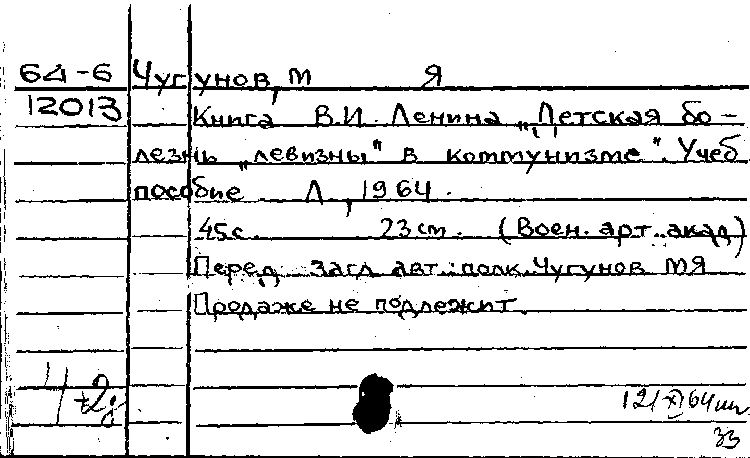 64-6 Чугунов, М Я
12013
Книга В.И. Ленина „Детская бо-
лезнь „левизны" в коммунизме". Учеб
пособие Л, 1964.
45с. 23см. (Воен. арт. акад)
Перед загл авт.: полк. Чугунов МЯ
Продаже не подлежит.
4
121 XI 64
33